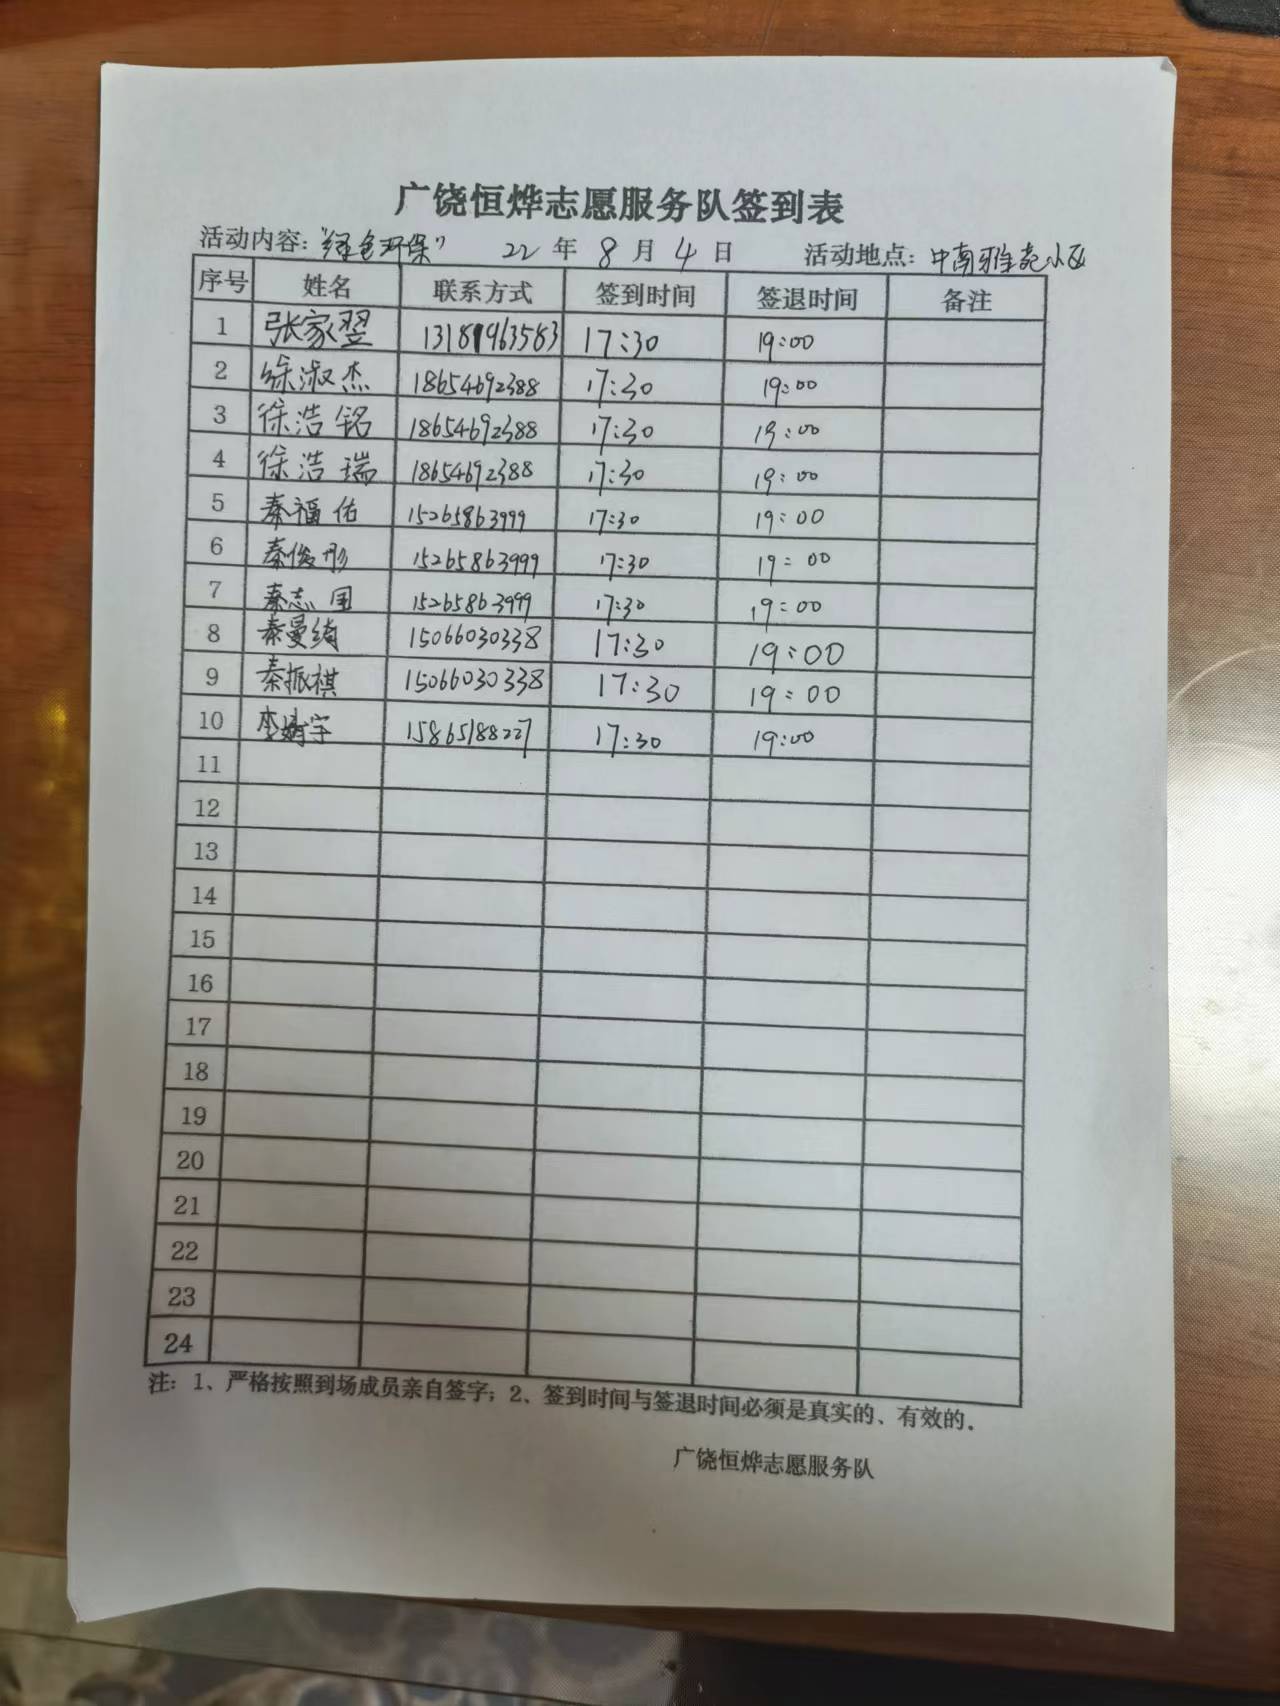 广饶恒烨志愿服务队签到表
活动内容：“绿色环保” 22 年 8 月 4 日 活动地点：中南雅苑小区
序号 姓名 联系方式 签到时间 签退时间 备注
1 张家翌 13181963583 17:30 19:00
2 徐淑杰 18654692388 17:30 19:00
3 徐浩铭 18654692388 17:30 19:00
4 徐浩瑞 18654692388 17:30 19:00
5 秦福佑 15265863999 17:30 19:00
6 秦俊彤 15265863999 17:30 19:00
7 秦志国 15265863999 17:30 19:00
8 秦曼绮 15066030338 17:30 19:00
9 秦振祺 15066030338 17:30 19:00
10 李婧宇 15865188227 17:30 19:00
11
12
13
14
15
16
17
18
19
20
21
22
23
24
注：1、严格按照到场成员亲自签字；2、签到时间与签退时间必须是真实的、有效的。
广饶恒烨志愿服务队